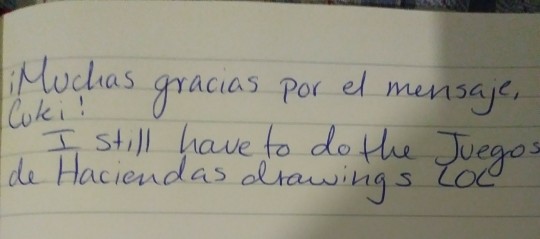 ¡Muchas gracias por el mensaje,
Cuki!
I still have to do the Juegos
de Haciendas drawings LOL